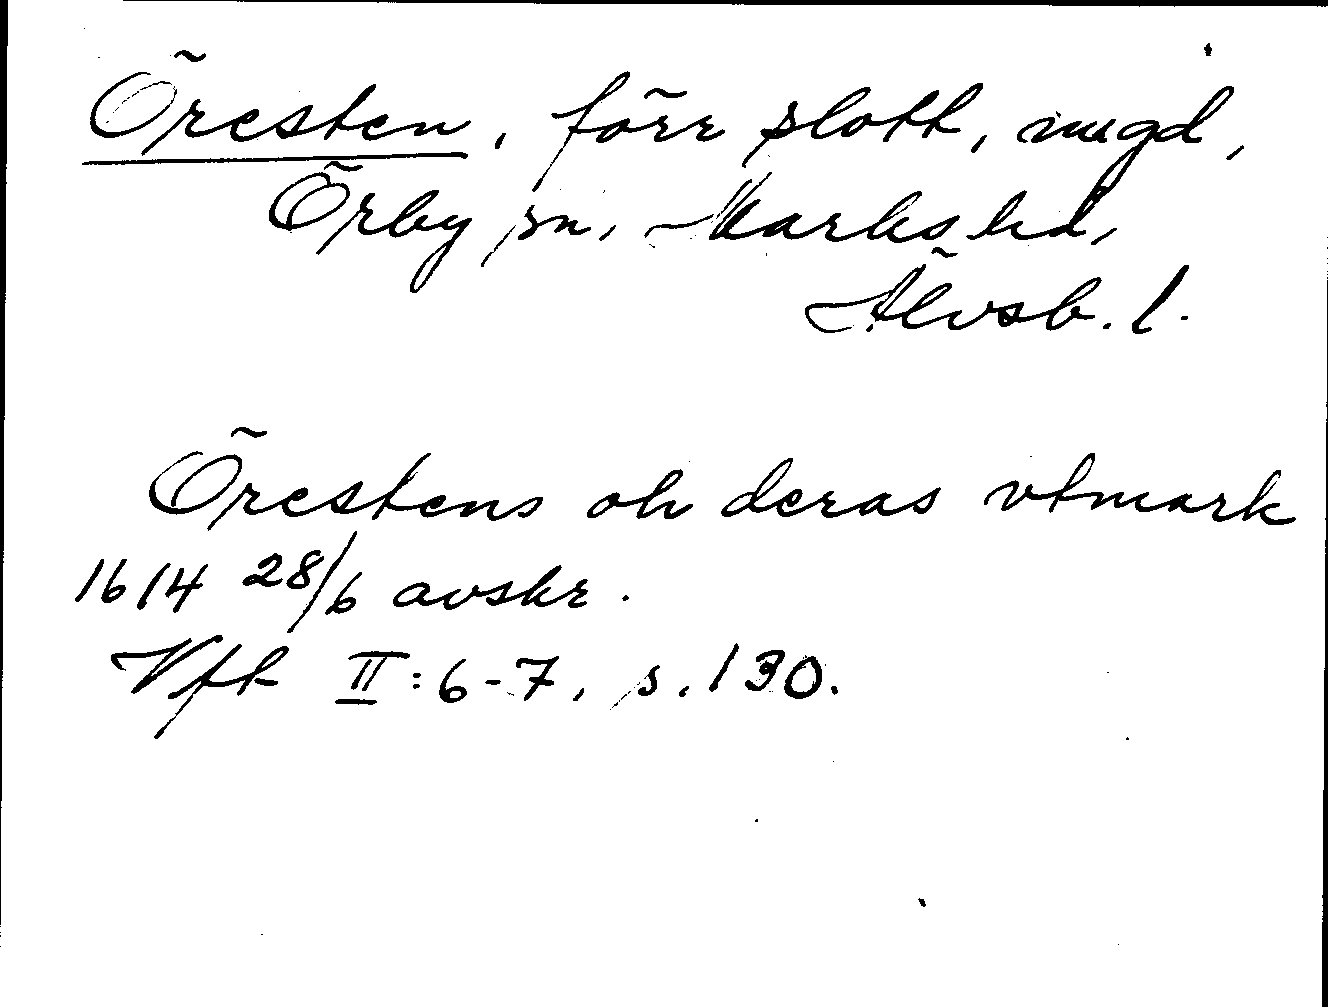 Öresten, förr slott, nugd,
Örby sn, Marks hd,
Älvsb. l.
Örestens oh deras vtmark
1614 28/6 avskr.
Vfk II:6-7, s. 130.